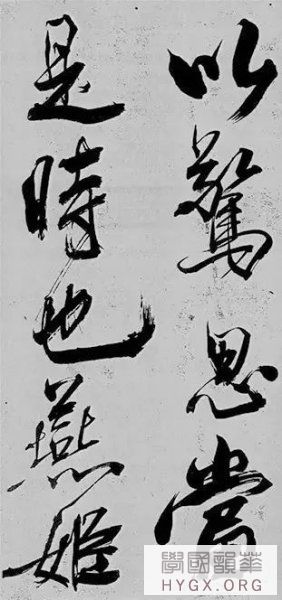 以驚思當
是時也燕姬
華韻國學
HYGX.ORG